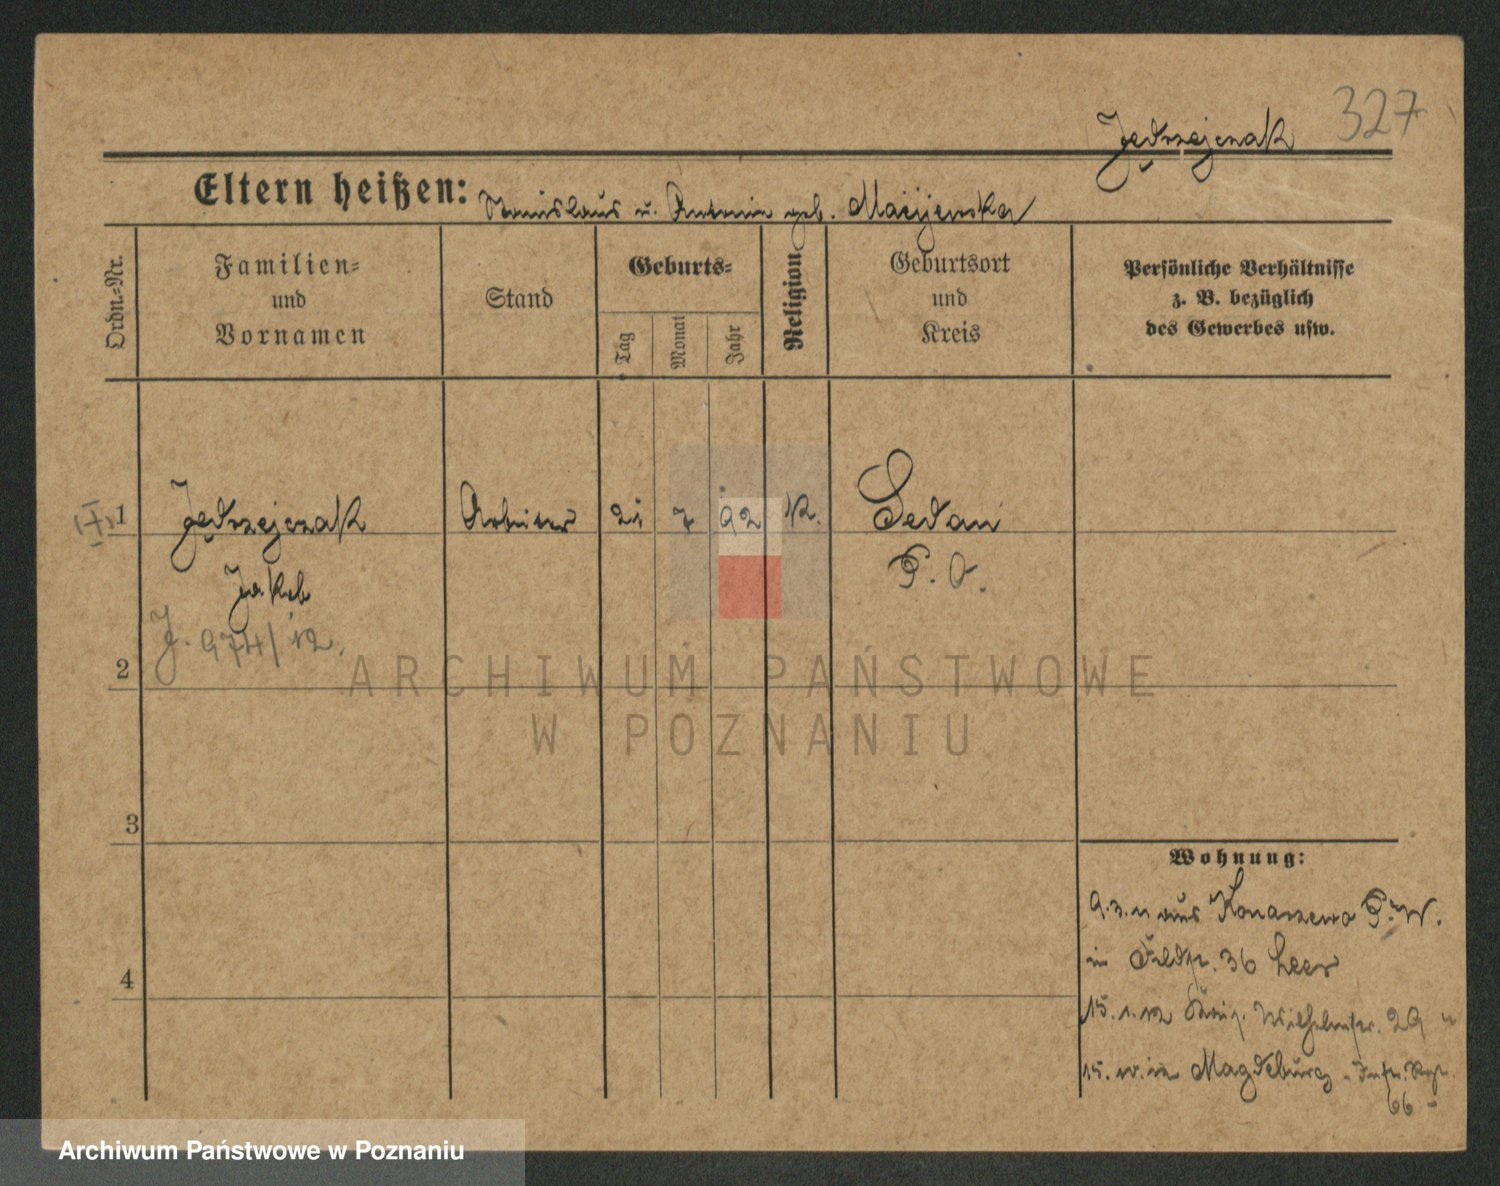 327
Jędrzejczak
Eltern heißen: Stanislaus u. Antonie geb. Maciejewska
Ordn.-Nr.
Familien-
und
Vornamen
Stand
Geburts-
Tag
Monat
Jahr
Religion
Geburtsort
und
Kreis
Persönliche Verhältnisse
z. B. bezüglich
des Gewerbes usw.
1 Jędrzejczak Arbeiter 21 7 92 K. Sedan
Jakob P. O.
J. 974/12.
2
3
4
Wohnung:
9.3.11 aus Konarzewo P. W.
in Feldstr. 36 Leer
15.1.12 Wilhelmstr. 29
15.10. in Magdeburg - Inftr. Regt.
66 -
ARCHIWUM PAŃSTWOWE
W POZNANIU
Archiwum Państwowe w Poznaniu